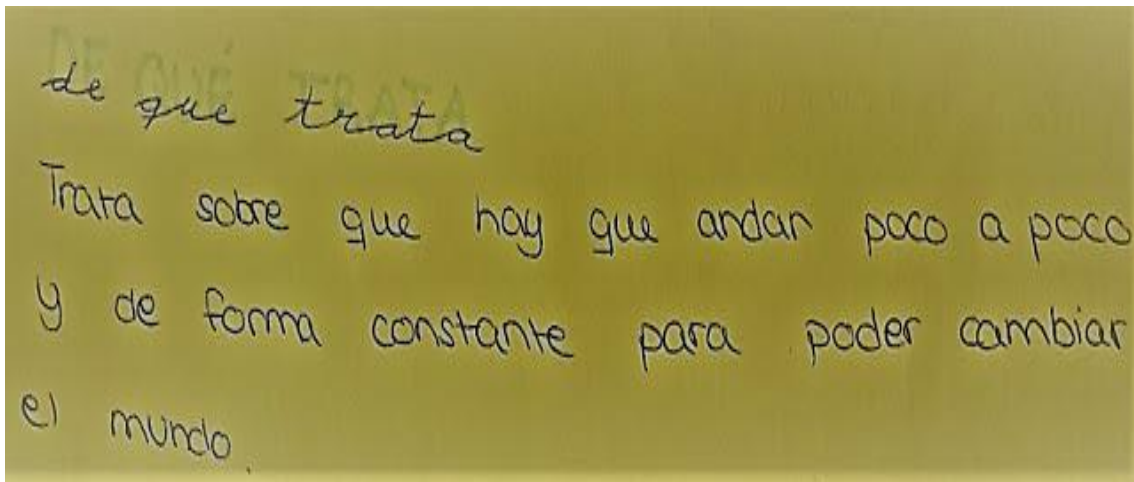 de que trata
Trata sobre que hay que andar poco a poco
y de forma constante para poder cambiar
el mundo.